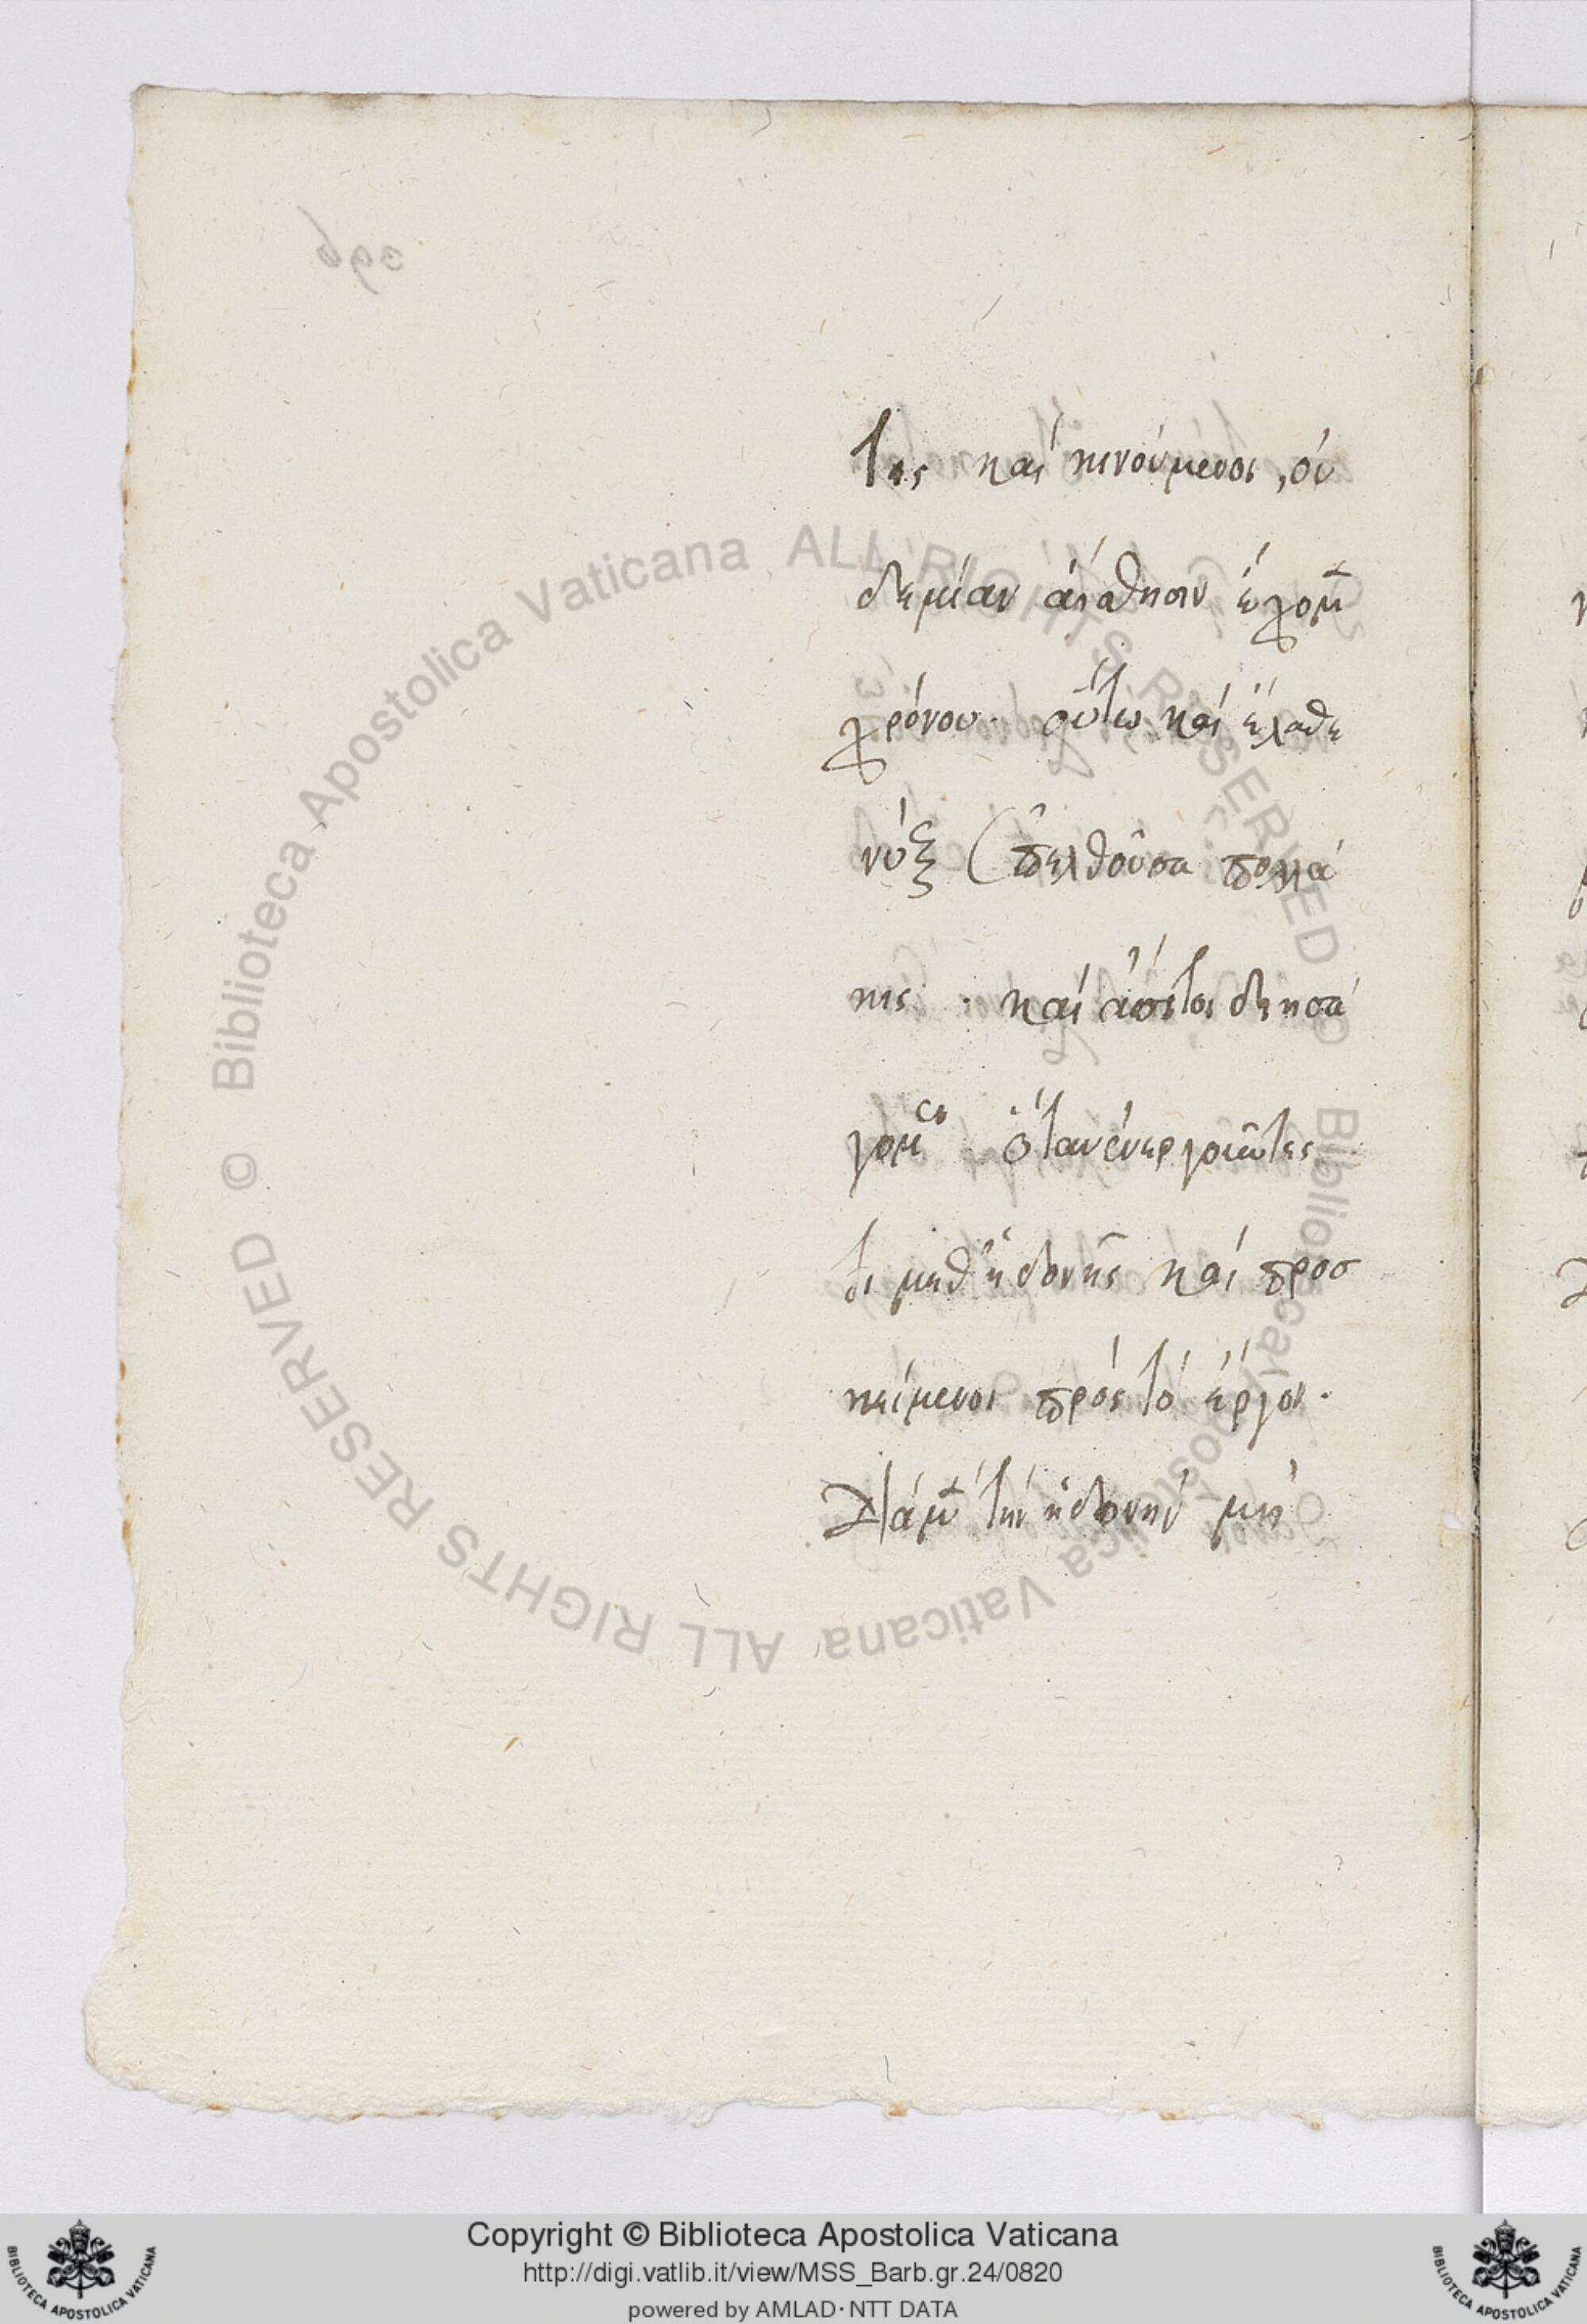 τες καὶ κινούμενοι, οὐ
δεμίαν αἴσθησιν ἔχομ̃
χρόνου. οὕτω καὶ ἔλαθε
νὺξ ἐπελθοῦσα πολλά
κις. καὶ ἄσιτοι διησά
γομεν ὅταν ἐνεργοῦντες
τι μεθ' ἡδονῆς καὶ προσ
κείμενοι πρὸς τὸ ἔργον.
Διὰ μ̃ τὴν ἡδονὴν μὴ
Copyright © Biblioteca Apostolica Vaticana
http://digi.vatlib.it/view/MSS_Barb.gr.24/0820
powered by AMLAD · NTT DATA
© Biblioteca Apostolica Vaticana ALL RIGHTS RESERVED
© Biblioteca Apostolica Vaticana ALL RIGHTS RESERVED
BIBLIOTECA APOSTOLICA VATICANA
BIBLIOTECA APOSTOLICA VATICANA